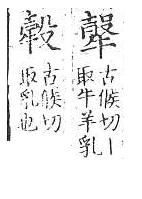 古候切丨
取牛羊乳
㝅
古候切
取乳也